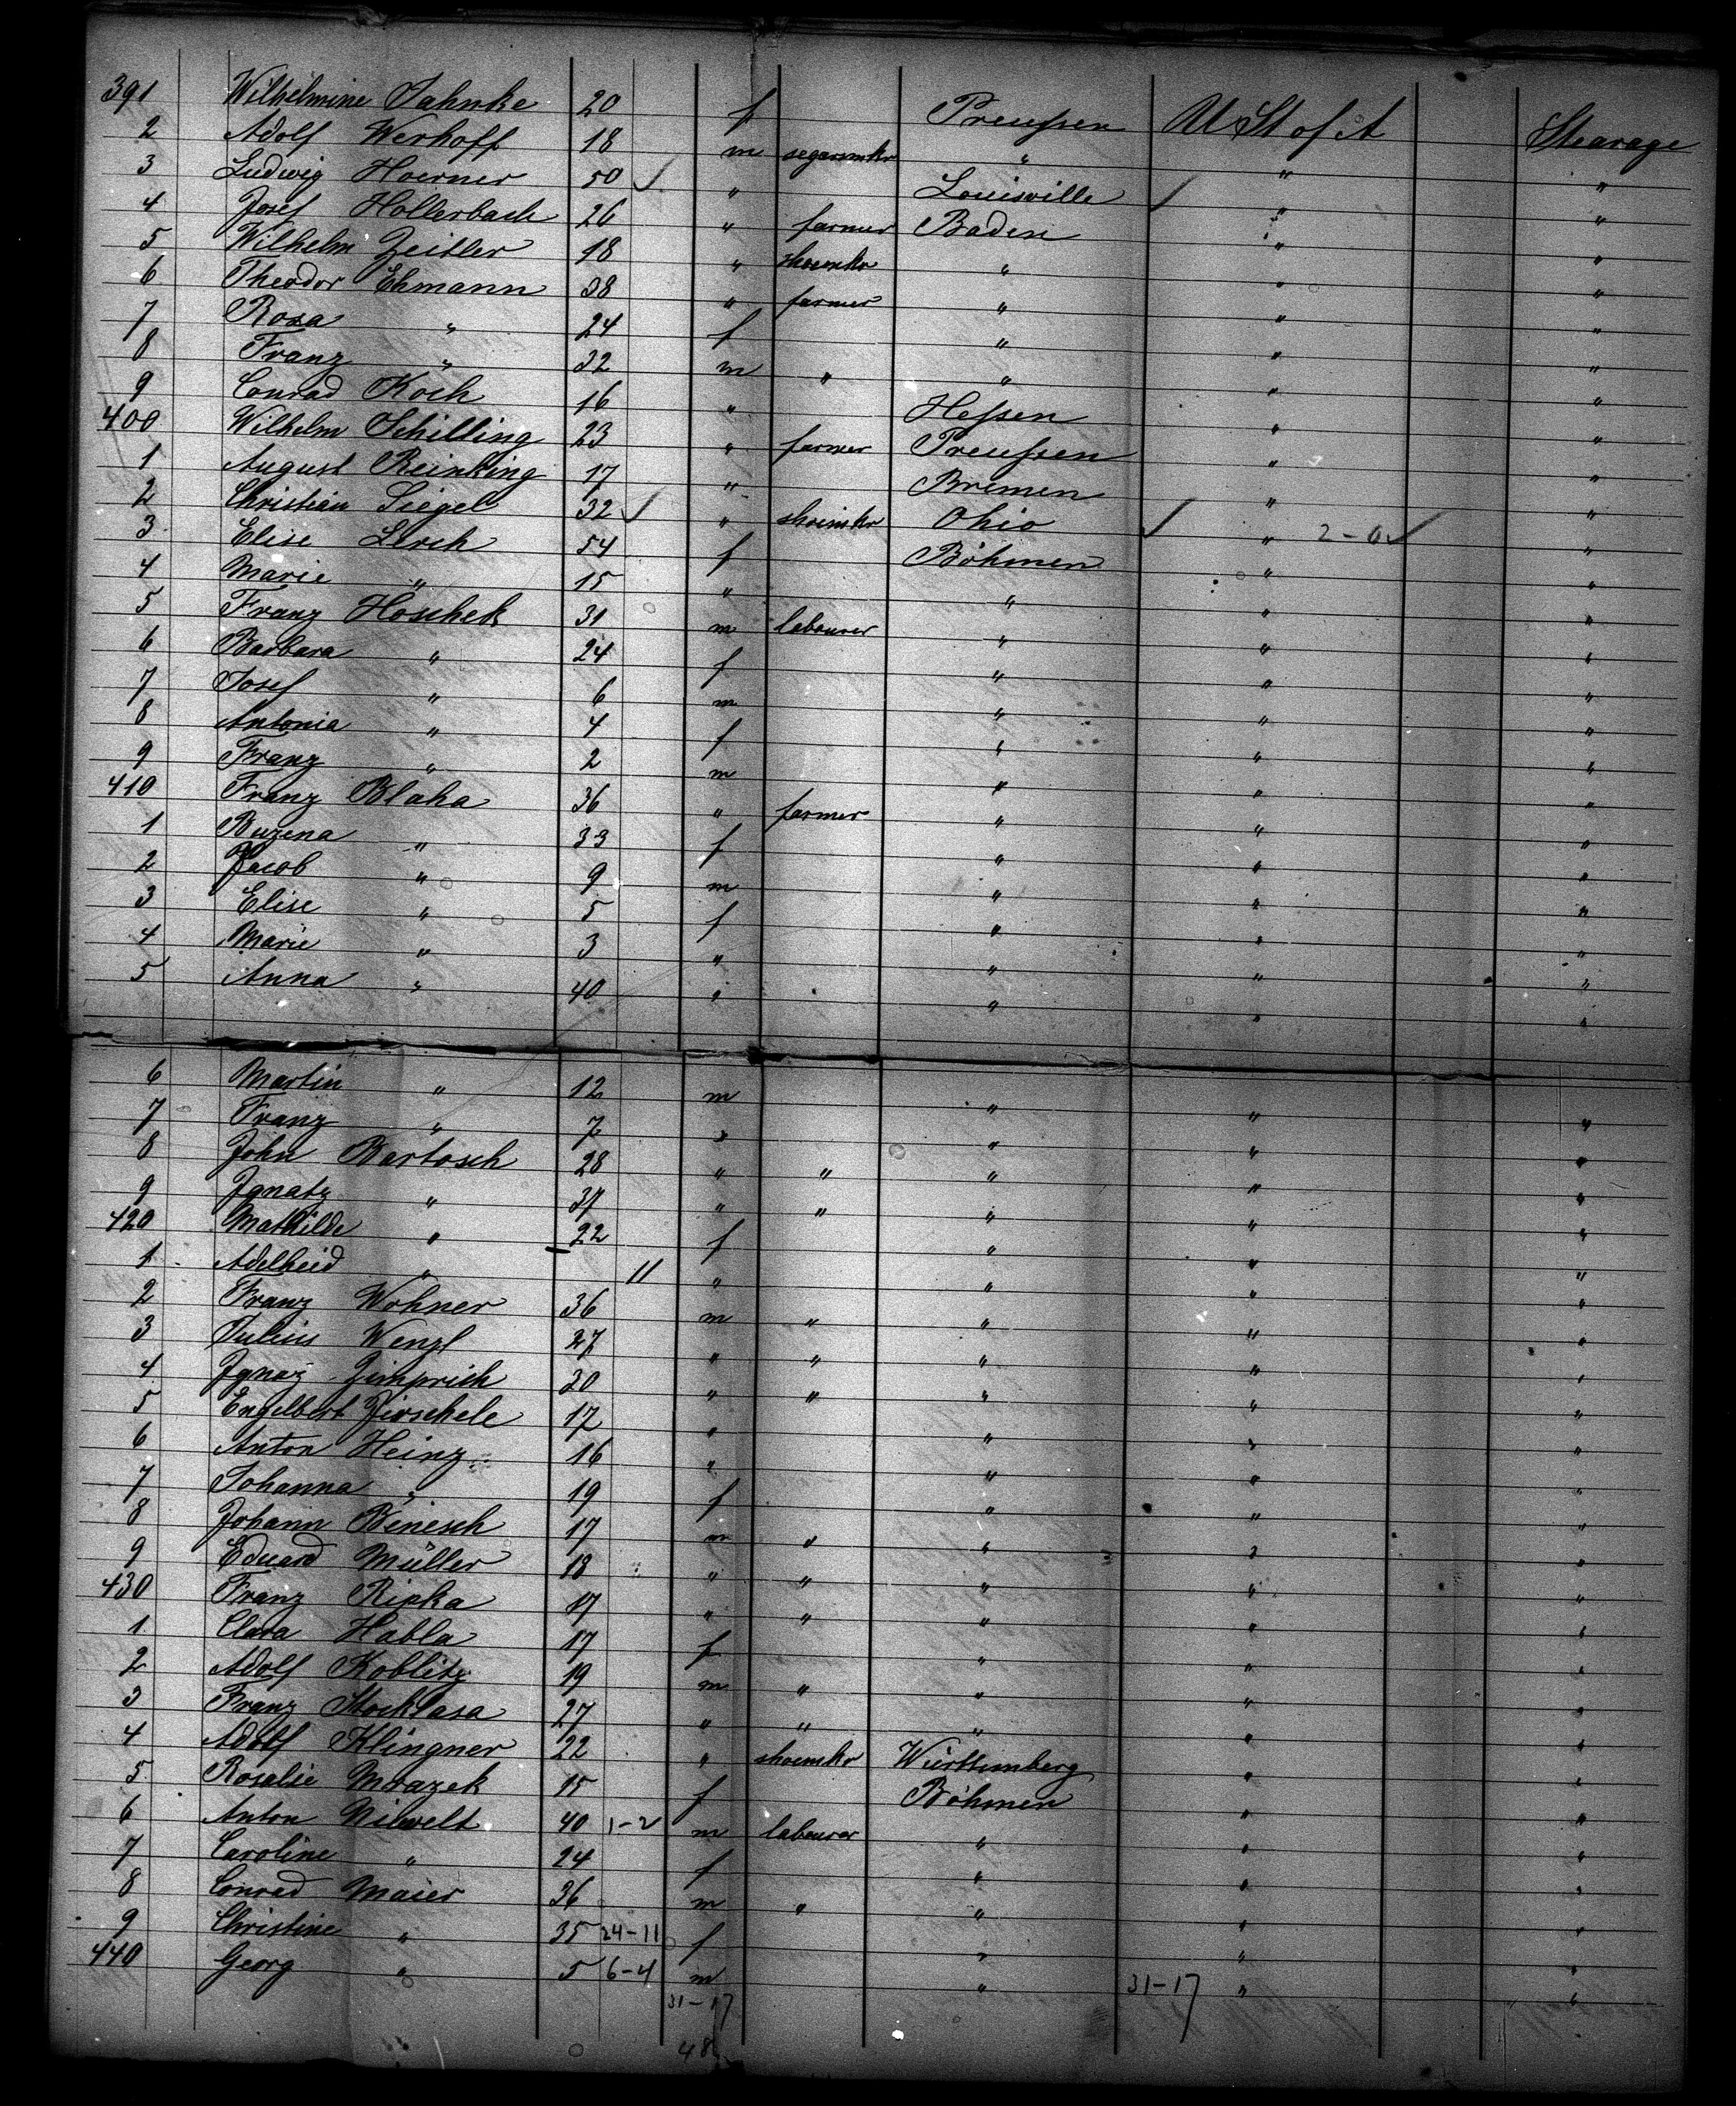 391 Wilhelmine Jahnke 20 f Preußen U St of A Stearage
2 Adolf Werhoff 18 m segarmkr " " "
3 Ludwig Hoerner 50 ✓ " Louisville ✓ " "
4 Josef Hollerbach 26 " farmer Baden " "
5 Wilhelm Zeitler 18 " shoemkr " " "
6 Theodor Ehmann 38 " farmer " " "
7 Rosa " 24 f " " "
8 Franz " 32 m " " " "
9 Conrad Koch 16 " Hessen " "
400 Wilhelm Schilling 23 " farmer Preußen " "
1 August Reinking 17 " Bremen " "
2 Christian Siegel 32 ✓ " shoemkr Ohio ✓ " 2-0 ✓ "
3 Elise Lerch 54 f Böhmen " "
4 Marie " 15 " " " "
5 Franz Hoschek 31 m labourer " " "
6 Barbara " 24 f " " "
7 Josef " 6 m " " "
8 Antonia " 4 f " " "
9 Franz " 2 m " " "
410 Franz Blaha 36 " farmer " " "
1 Buzena " 33 f " " "
2 Jacob " 9 m " " "
3 Elise " 5 f " " "
4 Marie " 3 " " " "
5 Anna " 40 " " " "
6 Martin " 12 m " " "
7 Franz " 7 " " " "
8 John Bartosch 28 " " " " "
9 Ignatz " 37 " " " " "
420 Mathilde " 22 f " " "
1 Adelheid " 11 " " " "
2 Franz Wohner 36 m " " " "
3 Julius Wenzl 27 " " " " "
4 Ignaz Zimprich 30 " " " " "
5 Engelbert Jirschele 17 " " " "
6 Anton Heinz 16 " " " "
7 Johanna " 19 f " " "
8 Johann Benesch 17 m " " " "
9 Eduard Müller 18 " " " " "
430 Franz Ripka 17 " " " " "
1 Clara Habla 17 f " " "
2 Adolf Koblitz 19 m " " " "
3 Franz Stocklasa 27 " " " " "
4 Adolf Klingner 22 " shoemkr Württemberg " "
5 Rosalie Mrazek 15 f Böhmen " "
6 Anton Nilwelt 40 1-2 m labourer " " "
7 Caroline " 24 f " " "
8 Conrad Maier 36 m " " " "
9 Christine " 35 24-11 f " " "
440 Georg " 5 6-4 m " 31-17 " "
31-17
48